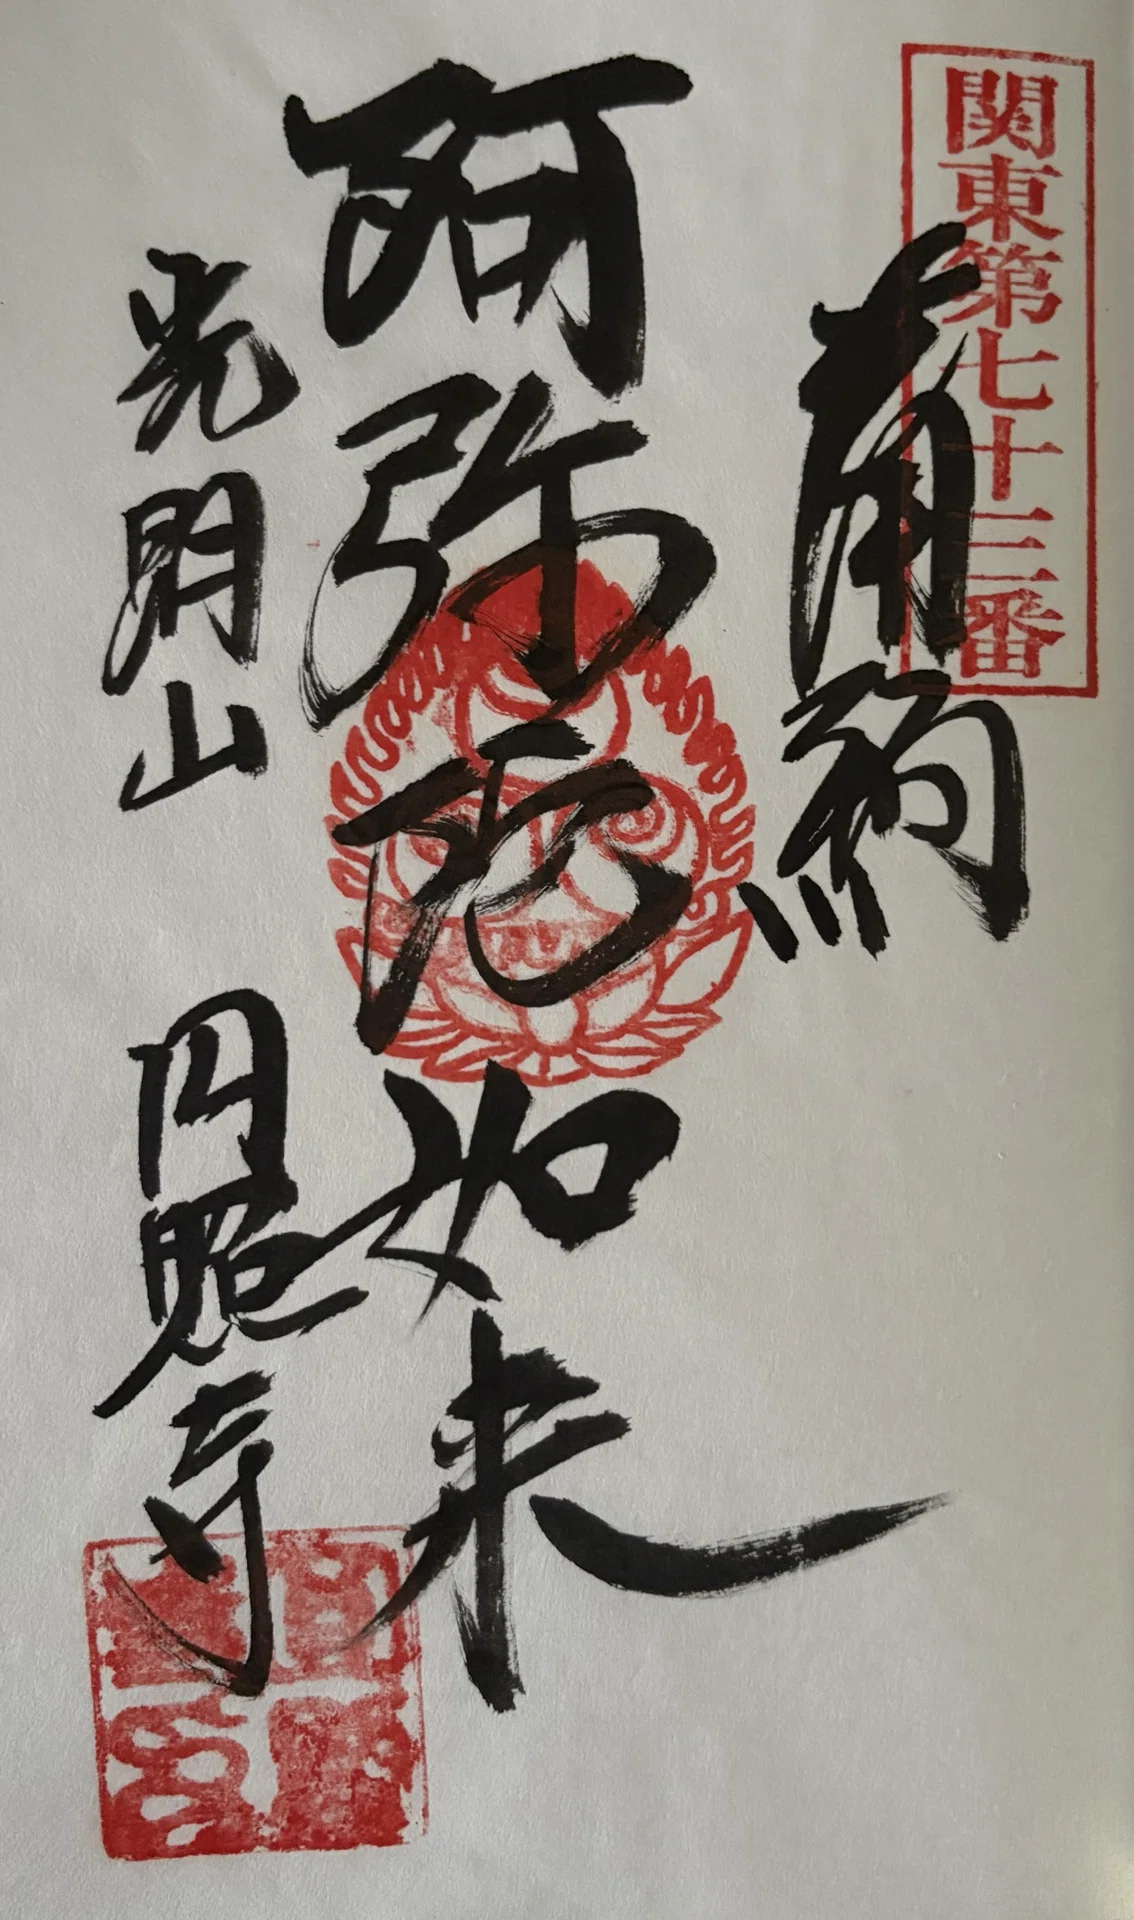 関東第七十三番
奉納
阿弥陀如来
光明山 円照寺